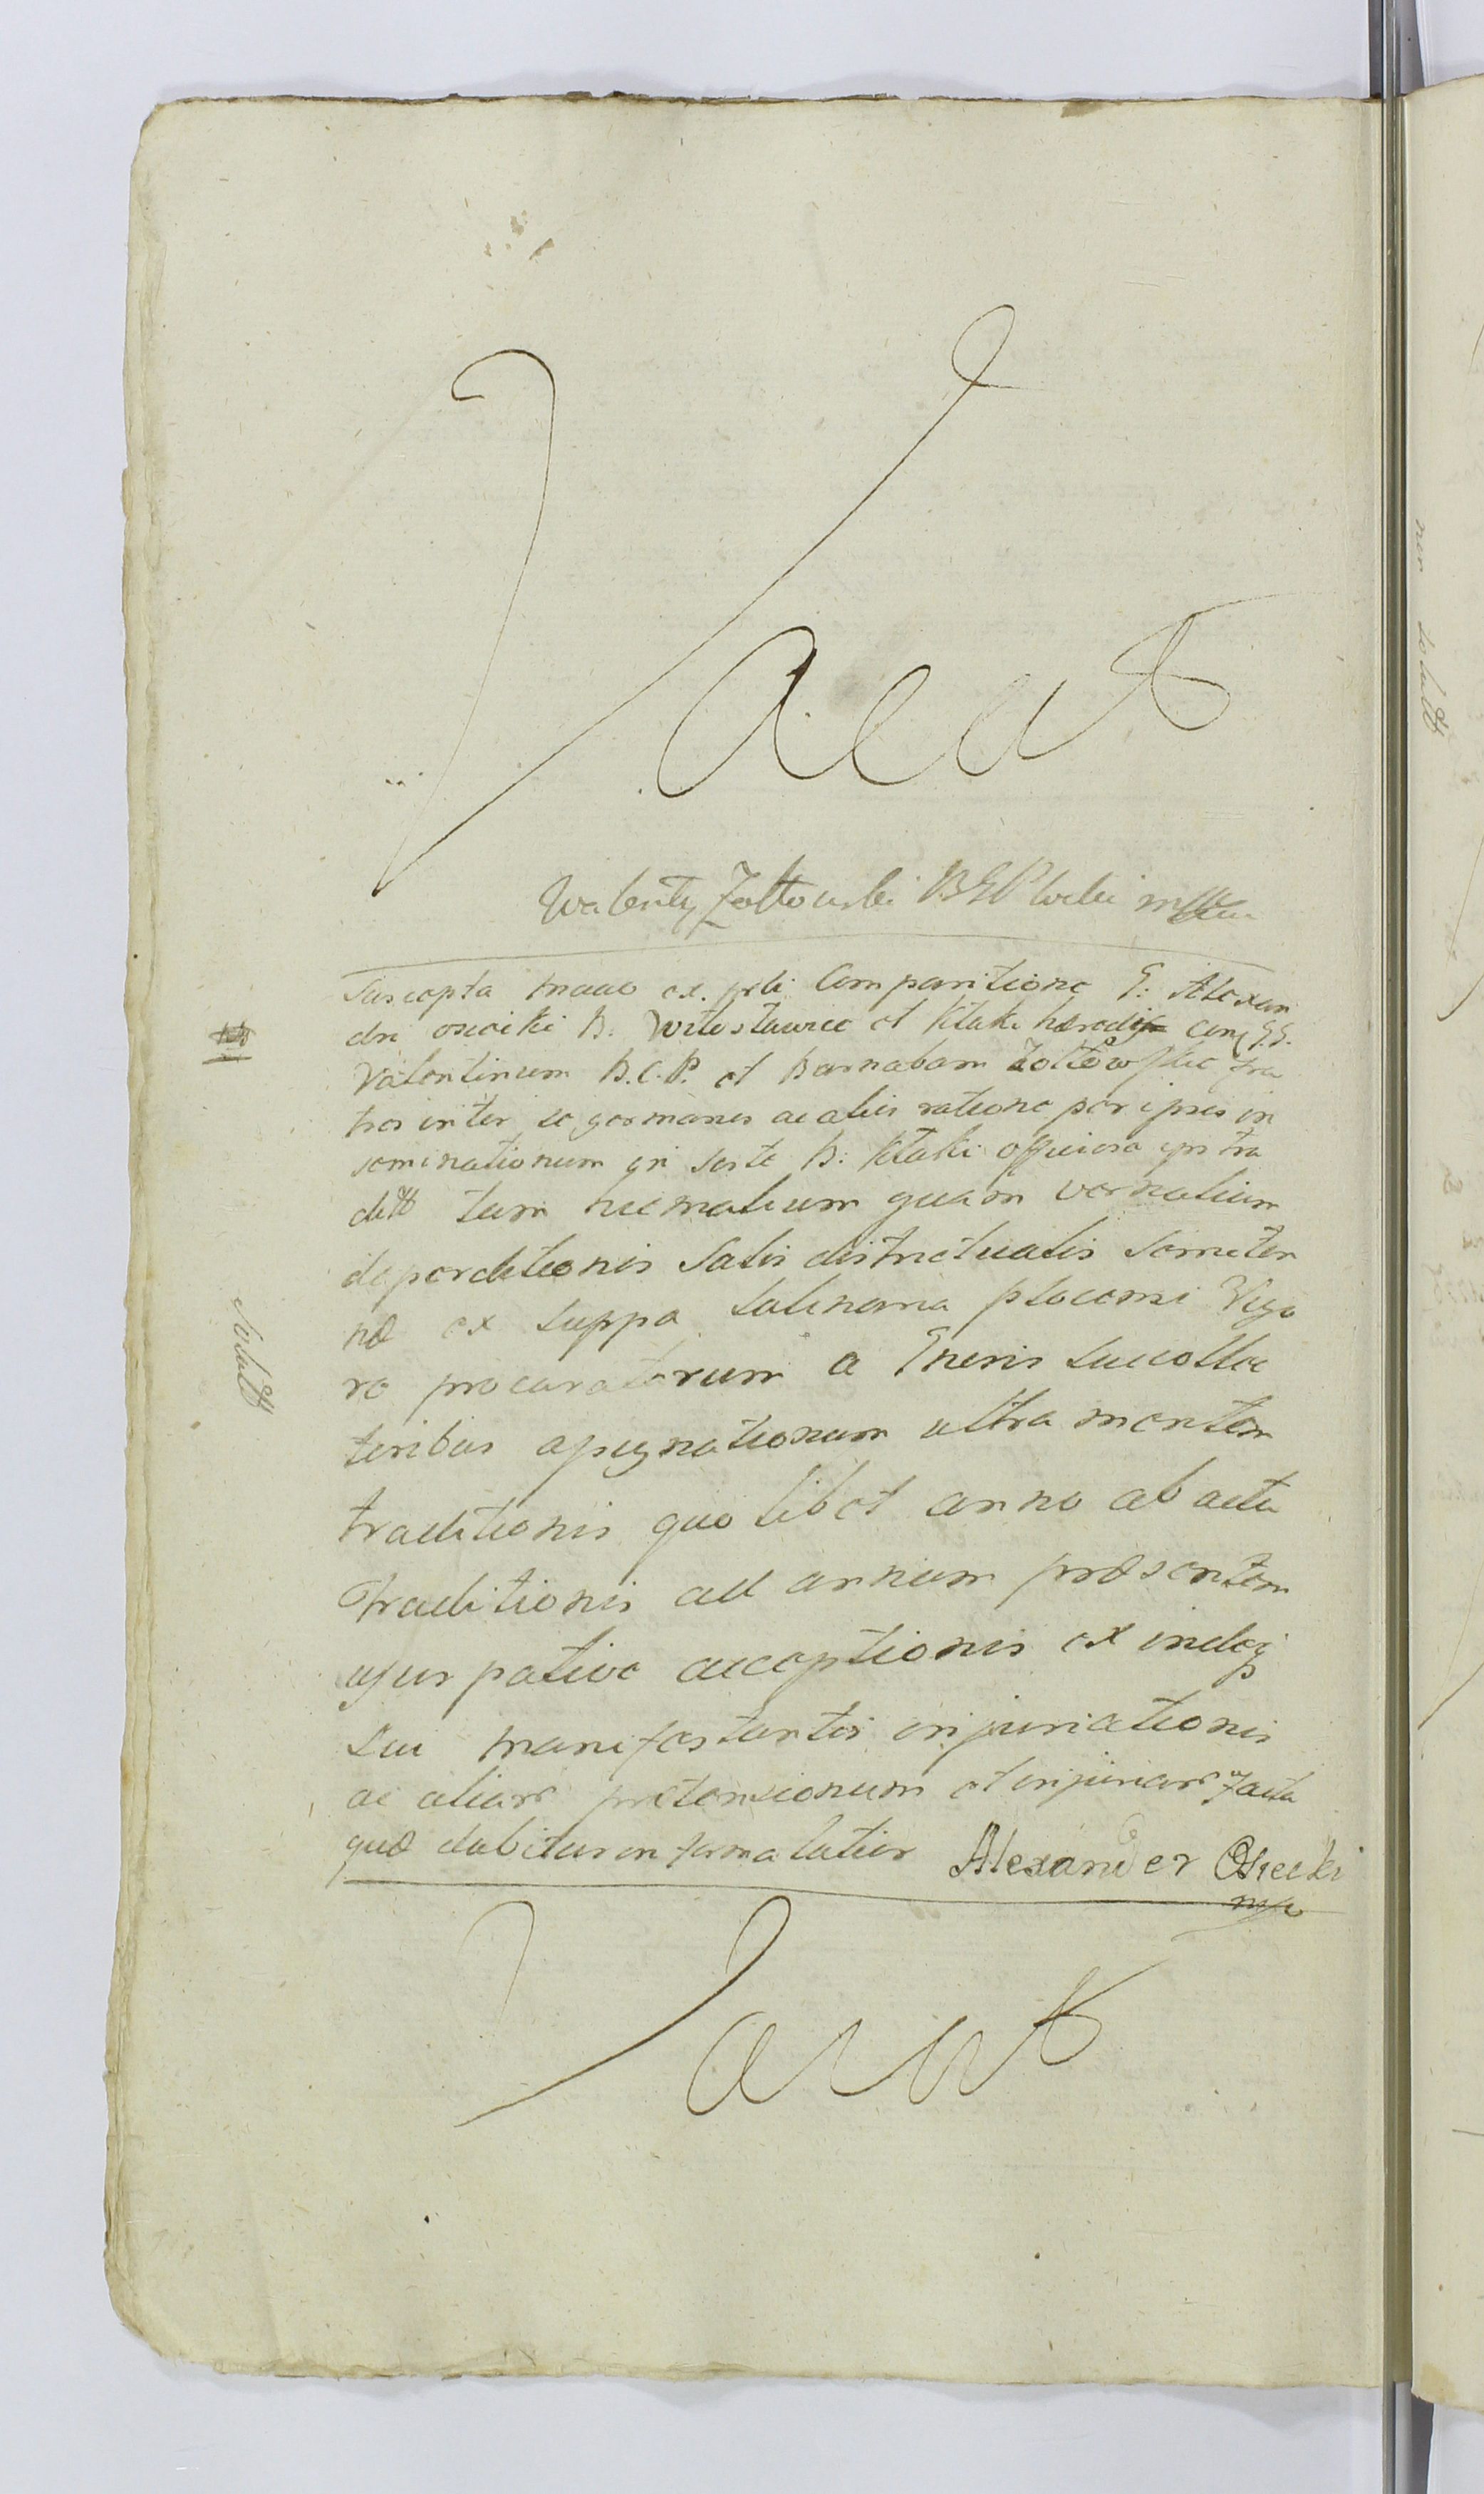 Vacat
Walenty Zołtowski BGPlocki mpp
Suscepta manife ex. psli Comparitione G: Alexan
dri osiecki B. Witosławice et Kłaki hæredis con GG.
Valentinum B.C.P. et Barnabam Zołtowskie fra
tres inter se germanos ac aliis ratione per ipsos in
seminationum in sorte B: Kłaki officiose ipsis tra
ditt tam hiemalium quam vernalium
deperditionis Salis districtualis
nd ex suppa Salinaria plocensi Vigo
re procuratorum a Gneris succolle
ctoribus assignationum ultra mentem
traditionis quo libet anno ab actu
Traditionis ad annum præsentem
usurpative acceptionis ex indeq
Sui manifestantis injuriationis
ac aliar prætensionum et injuriar facta
quæ dabitur in forma latior Alexander Osiecki
mp
Vacat
Solutt